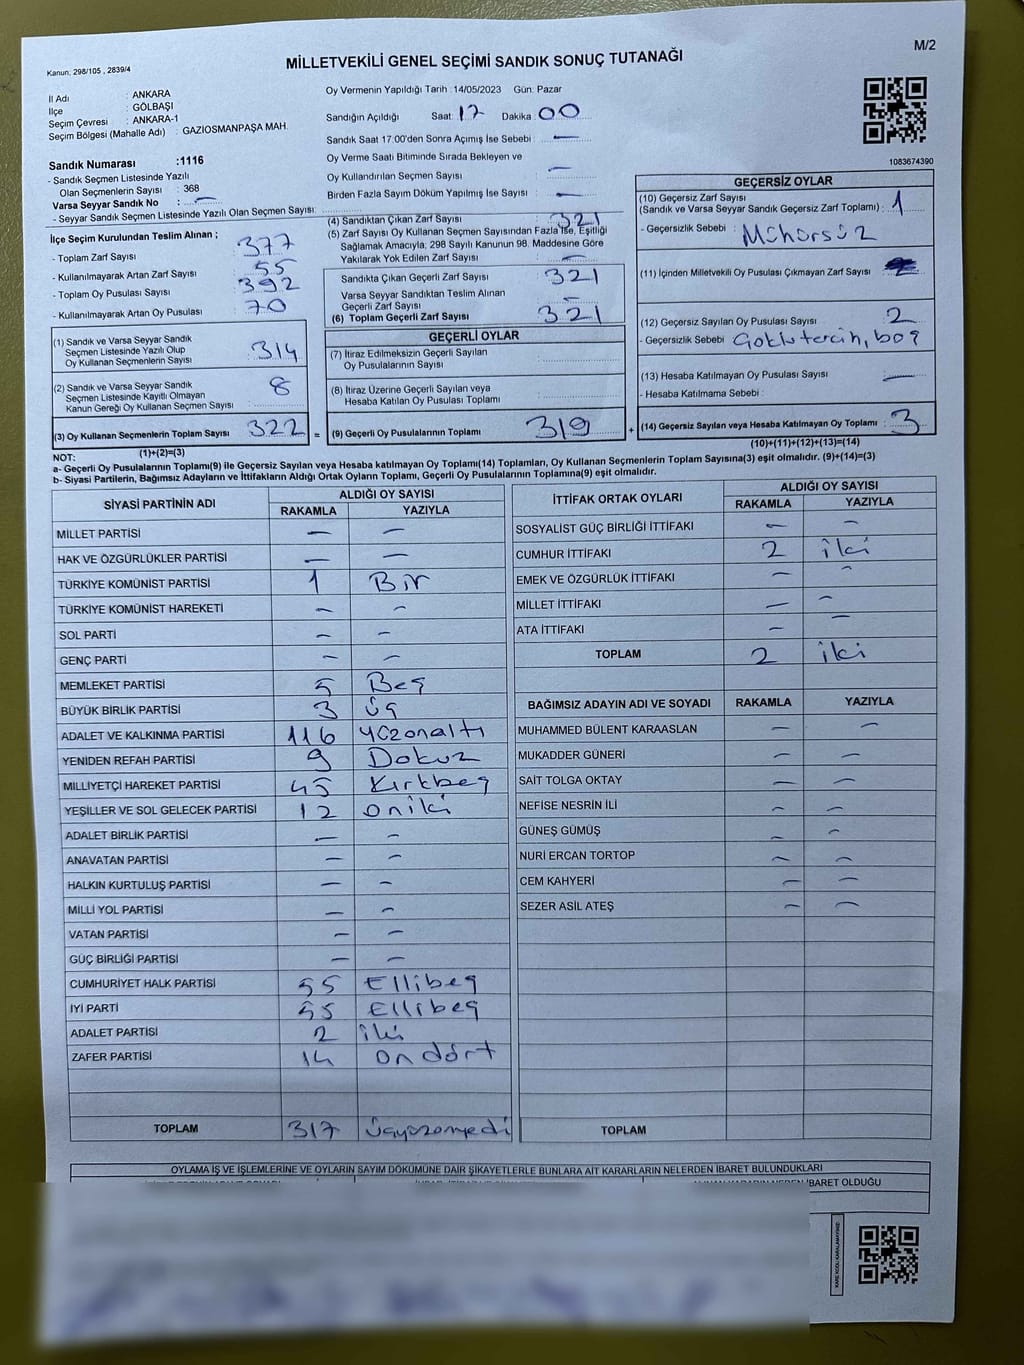 M/2
Kanun: 298/105 , 2839/4
MİLLETVEKİLİ GENEL SEÇİMİ SANDIK SONUÇ TUTANAĞI
İl Adı : ANKARA
İlçe : GÖLBAŞI
Seçim Çevresi : ANKARA-1
Seçim Bölgesi (Mahalle Adı) : GAZİOSMANPAŞA MAH.
Sandık Numarası :1116
- Sandık Seçmen Listesinde Yazılı
Olan Seçmenlerin Sayısı : 368
Varsa Seyyar Sandık No : —
- Seyyar Sandık Seçmen Listesinde Yazılı Olan Seçmen Sayısı:
Oy Vermenin Yapıldığı Tarih :14/05/2023 Gün: Pazar
Sandığın Açıldığı Saat: 17 Dakika: 00
Sandık Saat 17.00'den Sonra Açımış İse Sebebi : —
Oy Verme Saati Bitiminde Sırada Bekleyen ve
Oy Kullandırılan Seçmen Sayısı : —
Birden Fazla Sayım Döküm Yapılmış İse Sayısı : —
1083674390
İlçe Seçim Kurulundan Teslim Alınan ;
- Toplam Zarf Sayısı : 377
- Kullanılmayarak Artan Zarf Sayısı : 55
- Toplam Oy Pusulası Sayısı : 392
- Kullanılmayarak Artan Oy Pusulası : 70
(1) Sandık ve Varsa Seyyar Sandık
Seçmen Listesinde Yazılı Olup
Oy Kullanan Seçmenlerin Sayısı : 314
(2) Sandık ve Varsa Seyyar Sandık
Seçmen Listesinde Kayıtlı Olmayan
Kanun Gereği Oy Kullanan Seçmen Sayısı : 8
(3) Oy Kullanan Seçmenlerin Toplam Sayısı : 322
(1)+(2)=(3)
(4) Sandıktan Çıkan Zarf Sayısı : 321
(5) Zarf Sayısı Oy Kullanan Seçmen Sayısından Fazla İse, Eşitliği
Sağlamak Amacıyla, 298 Sayılı Kanunun 98. Maddesine Göre
Yakılarak Yok Edilen Zarf Sayısı : —
Sandıkta Çıkan Geçerli Zarf Sayısı : 321
Varsa Seyyar Sandıktan Teslim Alınan
Geçerli Zarf Sayısı : —
(6) Toplam Geçerli Zarf Sayısı : 321
GEÇERLİ OYLAR
(7) İtiraz Edilmeksizin Geçerli Sayılan
Oy Pusulalarının Sayısı :
(8) İtiraz Üzerine Geçerli Sayılan veya
Hesaba Katılan Oy Pusulası Toplamı :
= (9) Geçerli Oy Pusulalarının Toplamı : 319
GEÇERSİZ OYLAR
(10) Geçersiz Zarf Sayısı
(Sandık ve Varsa Seyyar Sandık Geçersiz Zarf Toplamı) : 1
- Geçersizlik Sebebi : Mühürsüz
(11) İçinden Milletvekili Oy Pusulası Çıkmayan Zarf Sayısı :
(12) Geçersiz Sayılan Oy Pusulası Sayısı : 2
- Geçersizlik Sebebi : Çoklu tercih, boş
(13) Hesaba Katılmayan Oy Pusulası Sayısı : —
- Hesaba Katılmama Sebebi :
+ (14) Geçersiz Sayılan veya Hesaba Katılmayan Oy Toplamı : 3
(10)+(11)+(12)+(13)=(14)
NOT:
a- Geçerli Oy Pusulalarının Toplamı(9) ile Geçersiz Sayılan veya Hesaba katılmayan Oy Toplamı(14) Toplamları, Oy Kullanan Seçmenlerin Toplam Sayısına(3) eşit olmalıdır. (9)+(14)=(3)
b- Siyasi Partilerin, Bağımsız Adayların ve İttifakların Aldığı Ortak Oyların Toplamı, Geçerli Oy Pusulalarının Toplamına(9) eşit olmalıdır.
SİYASİ PARTİNİN ADI ALDIĞI OY SAYISI
RAKAMLA YAZIYLA
MİLLET PARTİSİ — —
HAK VE ÖZGÜRLÜKLER PARTİSİ — —
TÜRKİYE KOMÜNİST PARTİSİ 1 Bir
TÜRKİYE KOMÜNİST HAREKETİ — —
SOL PARTİ — —
GENÇ PARTİ — —
MEMLEKET PARTİSİ 5 Beş
BÜYÜK BİRLİK PARTİSİ 3 üç
ADALET VE KALKINMA PARTİSİ 116 yüzonaltı
YENİDEN REFAH PARTİSİ 9 Dokuz
MİLLİYETÇİ HAREKET PARTİSİ 45 Kırkbeş
YEŞİLLER VE SOL GELECEK PARTİSİ 12 oniki
ADALET BİRLİK PARTİSİ — —
ANAVATAN PARTİSİ — —
HALKIN KURTULUŞ PARTİSİ — —
MİLLİ YOL PARTİSİ — —
VATAN PARTİSİ — —
GÜÇ BİRLİĞİ PARTİSİ — —
CUMHURİYET HALK PARTİSİ 55 Ellibeş
İYİ PARTİ 55 Ellibeş
ADALET PARTİSİ 2 iki
ZAFER PARTİSİ 14 ondört
TOPLAM 317 üçyüzonyedi
İTTİFAK ORTAK OYLARI ALDIĞI OY SAYISI
RAKAMLA YAZIYLA
SOSYALİST GÜÇ BİRLİĞİ İTTİFAKI — —
CUMHUR İTTİFAKI 2 iki
EMEK VE ÖZGÜRLÜK İTTİFAKI — —
MİLLET İTTİFAKI — —
ATA İTTİFAKI — —
TOPLAM 2 iki
BAĞIMSIZ ADAYIN ADI VE SOYADI RAKAMLA YAZIYLA
MUHAMMED BÜLENT KARAASLAN — —
MUKADDER GÜNERİ — —
SAİT TOLGA OKTAY — —
NEFİSE NESRİN İLİ — —
GÜNEŞ GÜMÜŞ — —
NURİ ERCAN TORTOP — —
CEM KAHYERİ — —
SEZER ASİL ATEŞ — —
TOPLAM
OYLAMA İŞ VE İŞLEMLERİNE VE OYLARIN SAYIM DÖKÜMÜNE DAİR ŞİKAYETLERLE BUNLARA AİT KARARLARIN NELERDEN İBARET BULUNDUKLARI
İBARET OLDUĞU
KARE KODU KARALAMAYINIZ